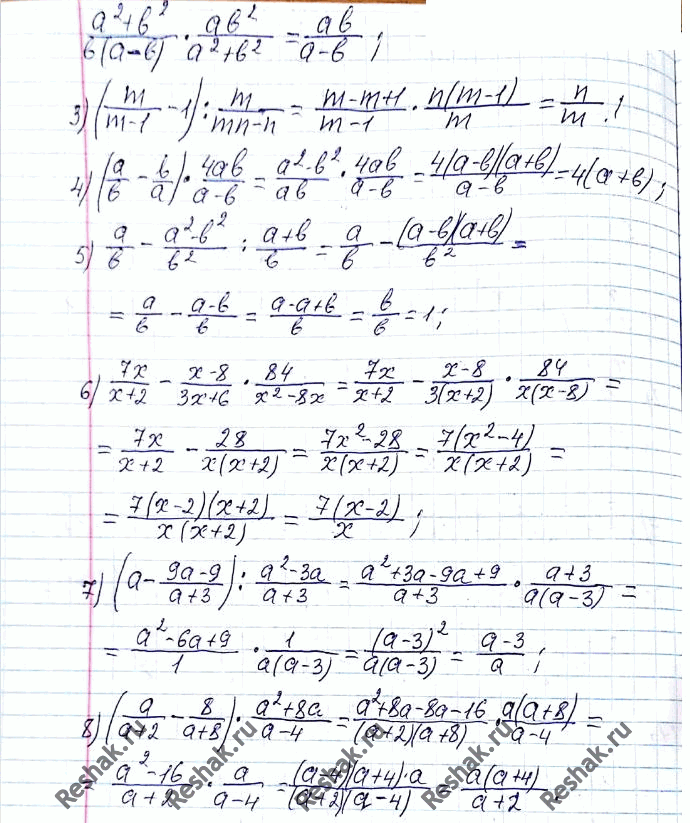 (a²+b²)/(b(a-b)) · ab²/(a²+b²) = ab/(a-b) ;
3) (m/(m-1) - 1) : m/(mn-n) = (m-m+1)/(m-1) · n(m-1)/m = n/m ;
4) (a/b - b/a) · 4ab/(a-b) = (a²-b²)/ab · 4ab/(a-b) = 4(a-b)(a+b)/(a-b) = 4(a+b) ;
5) a/b - (a²-b²)/b² : (a+b)/b = a/b - (a-b)(a+b)/b² =
= a/b - (a-b)/b = (a-a+b)/b = b/b = 1 ;
6) 7x/(x+2) - (x-8)/(3x+6) · 84/(x²-8x) = 7x/(x+2) - (x-8)/(3(x+2)) · 84/(x(x-8)) =
= 7x/(x+2) - 28/(x(x+2)) = (7x²-28)/(x(x+2)) = 7(x²-4)/(x(x+2)) =
= 7(x-2)(x+2)/(x(x+2)) = 7(x-2)/x ;
7) (a - (9a-9)/(a+3)) : (a²-3a)/(a+3) = (a²+3a-9a+9)/(a+3) · (a+3)/(a(a-3)) =
= (a²-6a+9)/1 · 1/(a(a-3)) = (a-3)²/(a(a-3)) = (a-3)/a ;
8) (a/(a+2) - 8/(a+8)) : (a²+8a)/(a-4) = (a²+8a-8a-16)/((a+2)(a+8)) · a(a+8)/(a-4) =
= (a²-16)/(a+2) · a/(a-4) = (a-4)(a+4)·a/((a+2)(a-4)) = a(a+4)/(a+2) .
Reshak.ru
Reshak.ru
Reshak.ru
Reshak.ru
Reshak.ru
Reshak.ru